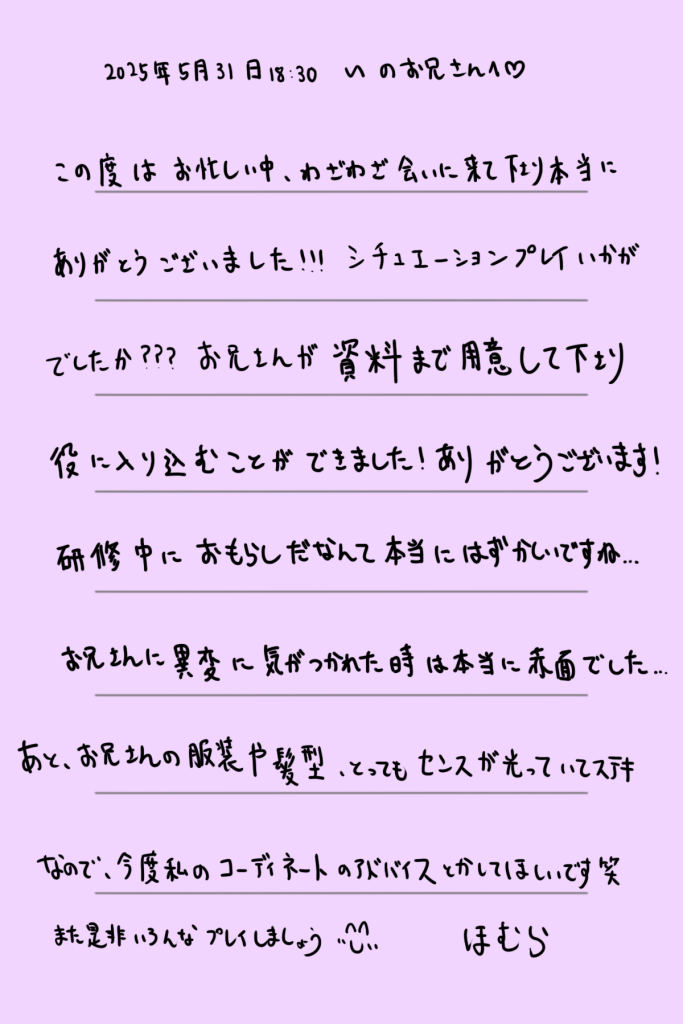 2025年5月31日18:30 い のお兄さんへ♡
この度は お忙しい中、わざわざ会いに来て下さり本当に
ありがとうございました!!! シチュエーションプレイいかが
でしたか??? お兄さんが資料まで用意して下さり
役に入り込むことができました!ありがとうございます!
研修中におもらしだなんて本当にはずかしいですね...
お兄さんに異変に気がつかれた時は本当に赤面でした...
あと、お兄さんの服装や髪型、とってもセンスが光っていてステキ
なので、今度私のコーディネートのアドバイスとかしてほしいです笑
また是非いろんなプレイしましょう
ほむら